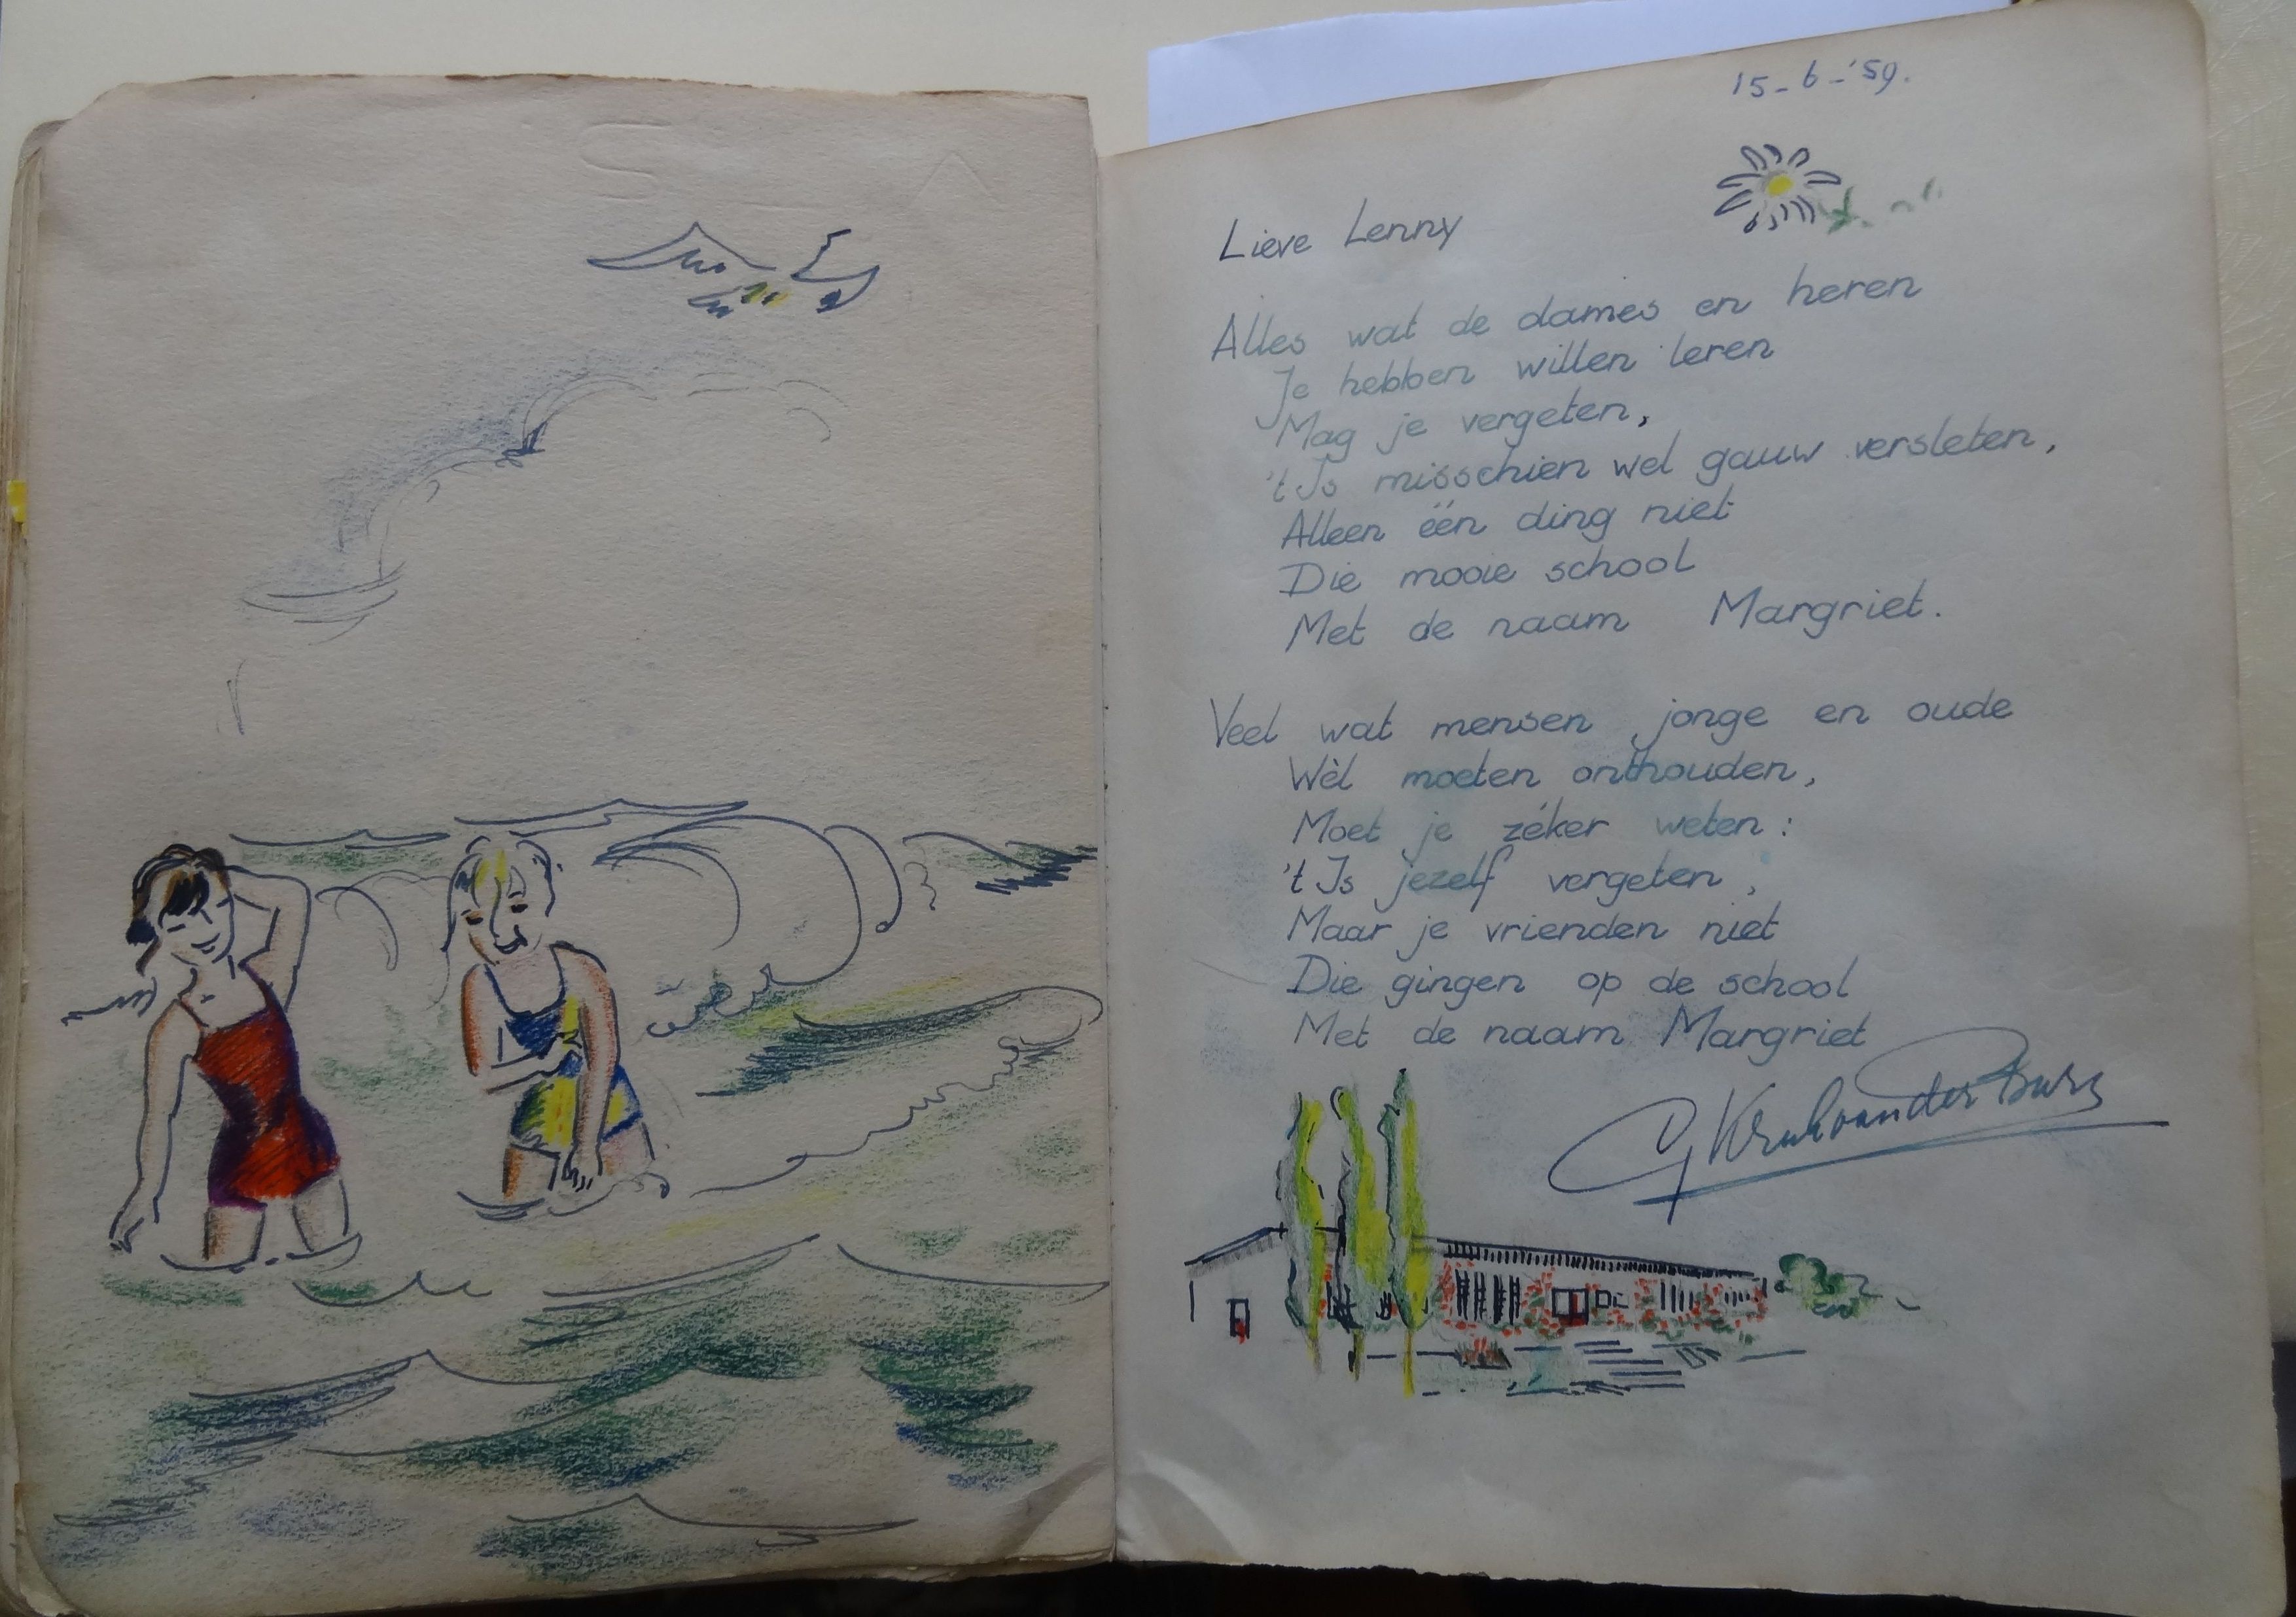 15-6-'59.
Lieve Lenny
Alles wat de dames en heren
Je hebben willen leren
Mag je vergeten,
't Is misschien wel gauw versleten,
Alleen één ding niet
Die mooie school
Met de naam Margriet.
Veel wat mensen jonge en oude
Wèl moeten onthouden,
Moet je zéker weten:
't Is jezelf vergeten,
Maar je vrienden niet
Die gingen op de school
Met de naam Margriet